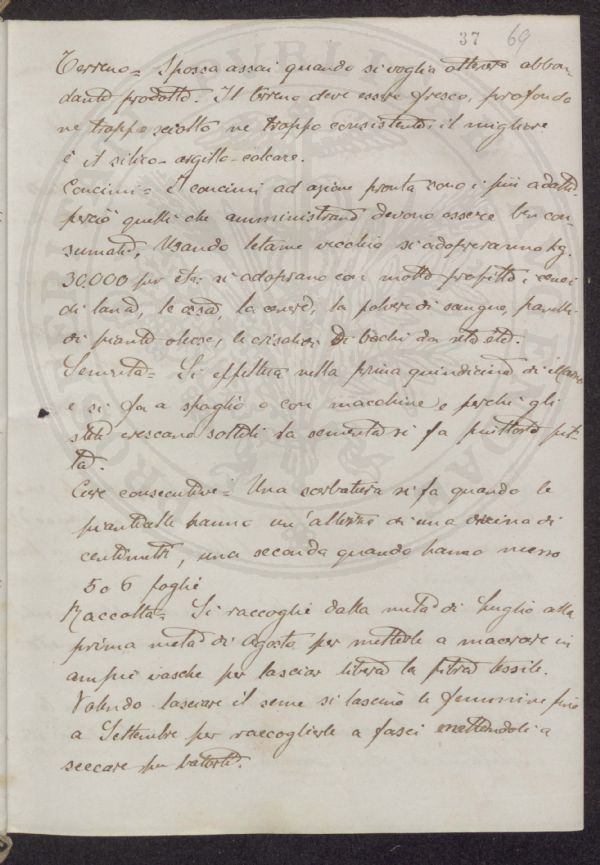 37 69
Terreno = Spossa assai quando si voglia ottenere abbon-
dante prodotto. Il terreno deve essere fresco, profondo
ne troppo sciolto ne troppo consistente, il migliore
è il silico-argillo-calcare.
Concimi = I concimi ad azione pronta sono i più adatti
perciò quelli che amministrano devono essere ben con-
sumati, Usando letame vecchio si adopreranno kg.
30,000 per età: si adoprano con molto profitto i cenci
di lana, le ossa, la cenere, la polvere di sangue, panelli
di piante oleose, le crisalidi di bachi da seta etc.
Sementa = Si effettua nella prima quindicina di Marzo
e si fa a spaglio o con macchine e perchè gli
steli crescano sottili la sementa si fa piuttosto fit-
ta.
Cure consecutive = Una sarbatura si fa quando le
pianticelle hanno un'altezza di una decina di
centimetri, una seconda quando hanno messo
5 o 6 foglie
Raccolta = Si raccoglie dalla metà di Luglio alla
prima metà di Agosto per metterle a macerare in
ampie vasche per lasciar libera la fibra tessile.
Volendo lasciare il seme si lasciano le femmine fino
a Settembre per raccoglierle a fasci mettendoli a
seccare per batterli.
PROSPERITA PVBLICA AVGENDA